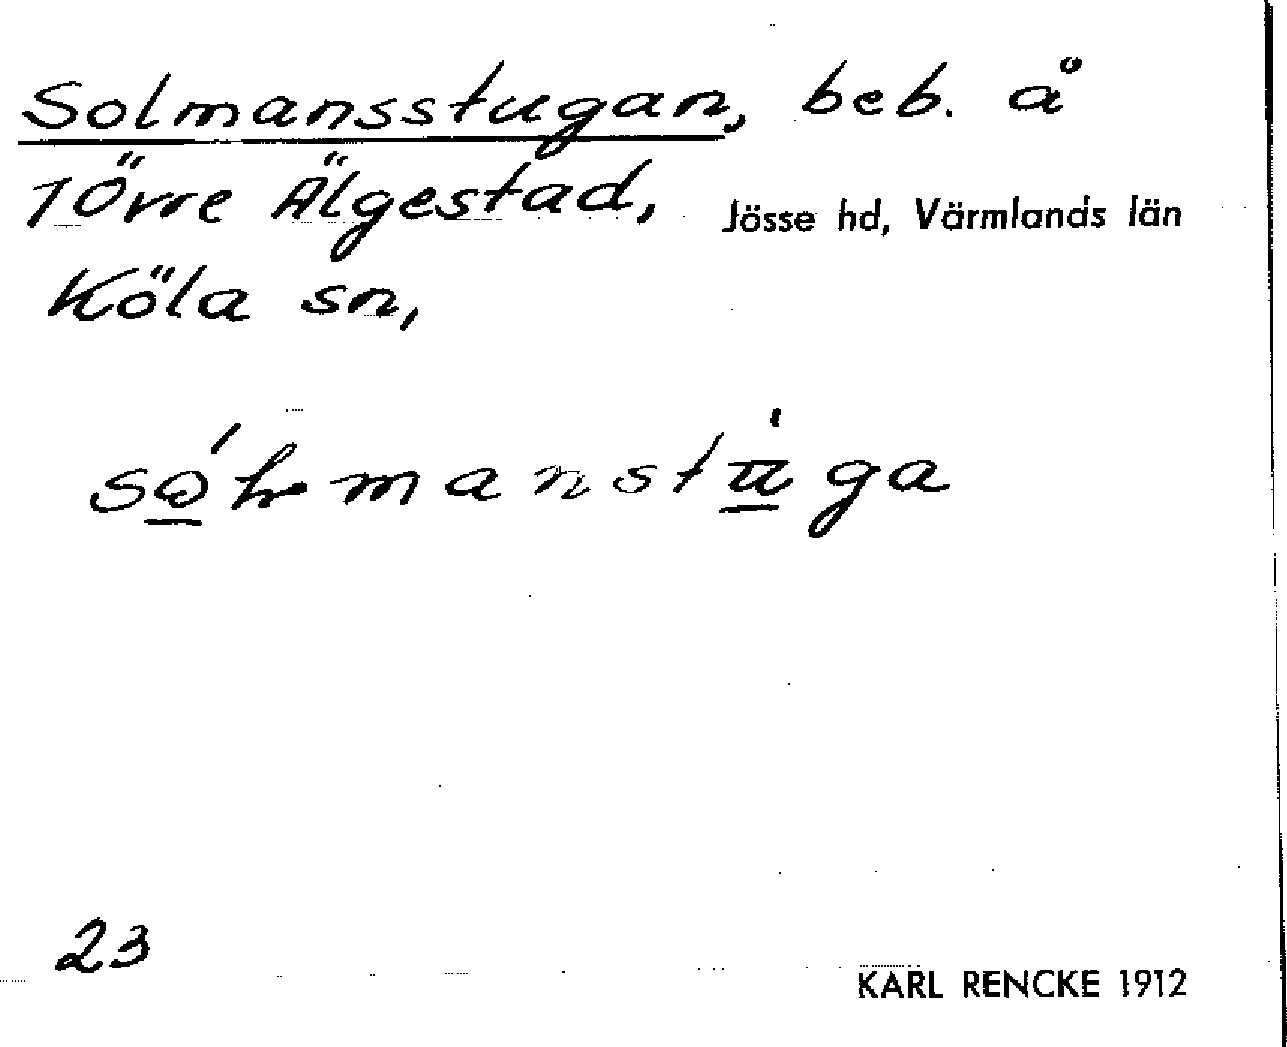 Solmansstugan, beb. å
1 Övre Älgestad, Jösse hd, Värmlands län
Köla sn,
23
KARL RENCKE 1912